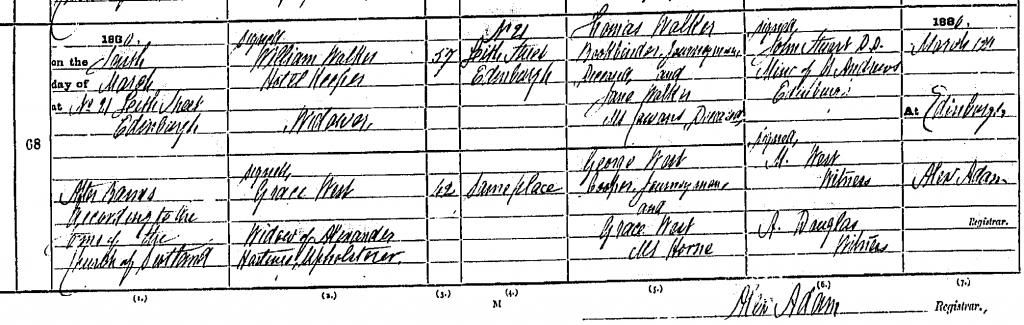 68
1880.
on the Tenth
day of March
at No 21 Leith Street
Edinburgh
After Banns
According to the
Forms of the
Church of Scotland
signed,
William Walker
Hotel Keeper
Widower
signed,
Grace West
Widow of Alexander
Upholsterer.
57
42
No 21
Leith Street
Edinburgh
Same place
Thomas Walker
Bookbinder Journeyman
Deceased and
Jane Walker
Ms Deceased
George West
Cooper Journeyman
and
Grace West
Ms Horne
signed,
John Stuart D.D.
Minr of St Andrews
Edinburgh
signed,
M. West
Witness
A. Douglas
Witness
1880.
March
At Edinburgh
Alexr Adam
Registrar.
(1.)
(2.)
(3.)
(4.)
(5.)
(6.)
(7.)
M
Alexr Adam
Registrar.,